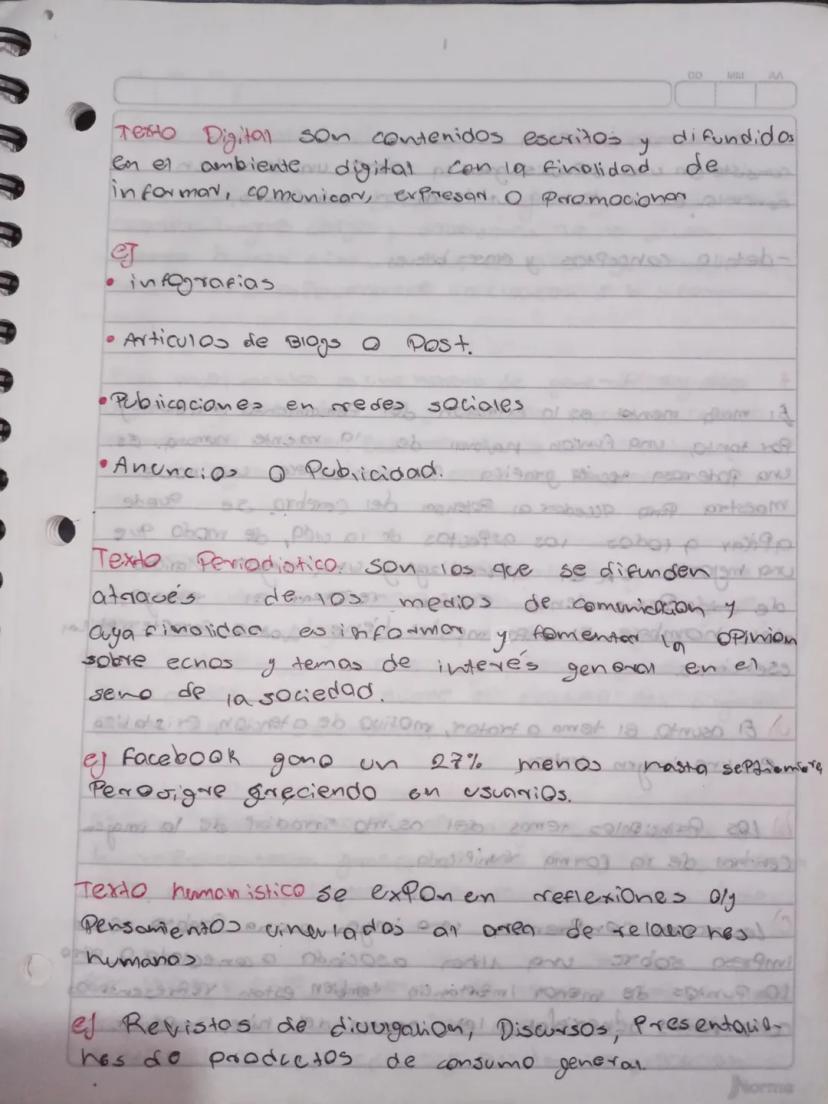 DD MM AA
Texto Digital son contenidos escritos y difundidos
en el ambiente digital con la finalidad de
informar, comunicar, expresar o promocionar
ej
• infografias
• Articulos de Blogs o Post.
• Publicaciones en redes sociales
• Anuncios o Publicidad.
Texto Periodistico. son los que se difunden
atraves de los medios de comunicacion y
cuya finalidad es informar y fomentar la opinion
sobre echos y temas de interés general en el
seno de la sociedad.
ej Facebook gano un 27% menos hasta septiembre
Pero sigue creciendo en usuarios.
Texto humanistico se exponen reflexiones o/y
Pensamientos vinculados al area de relaciones
humanas
ej Revistas de divulgacion, Discursos, Presentacio-
nes de productos de consumo general.
Norma